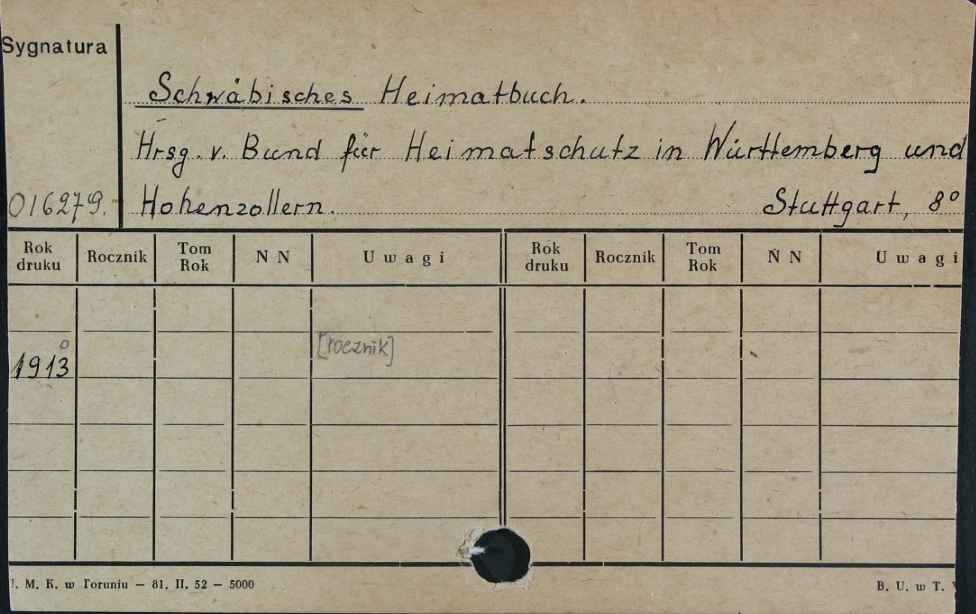 Sygnatura
Schwäbisches Heimatbuch.
Hrsg. v. Bund für Heimatschutz in Württemberg und
016279. Hohenzollern. Stuttgart, 8°
Rok druku Rocznik Tom Rok N N U w a g i Rok druku Rocznik Tom Rok N N U w a g i
[rocznik]
1913°
. M. K. w Toruniu — 81. II. 52 — 5000 B. U. w T.